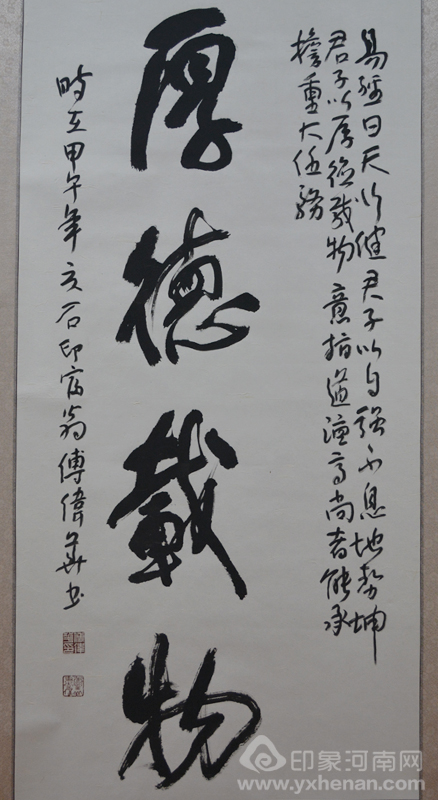 易經曰天行健君子以自強不息地勢坤
君子以厚德載物意指道德高尚者能承
擔重大任務
厚德載物
時在甲午年亥石印宿翁傅偉華書
印象河南网
www.yxhenan.com